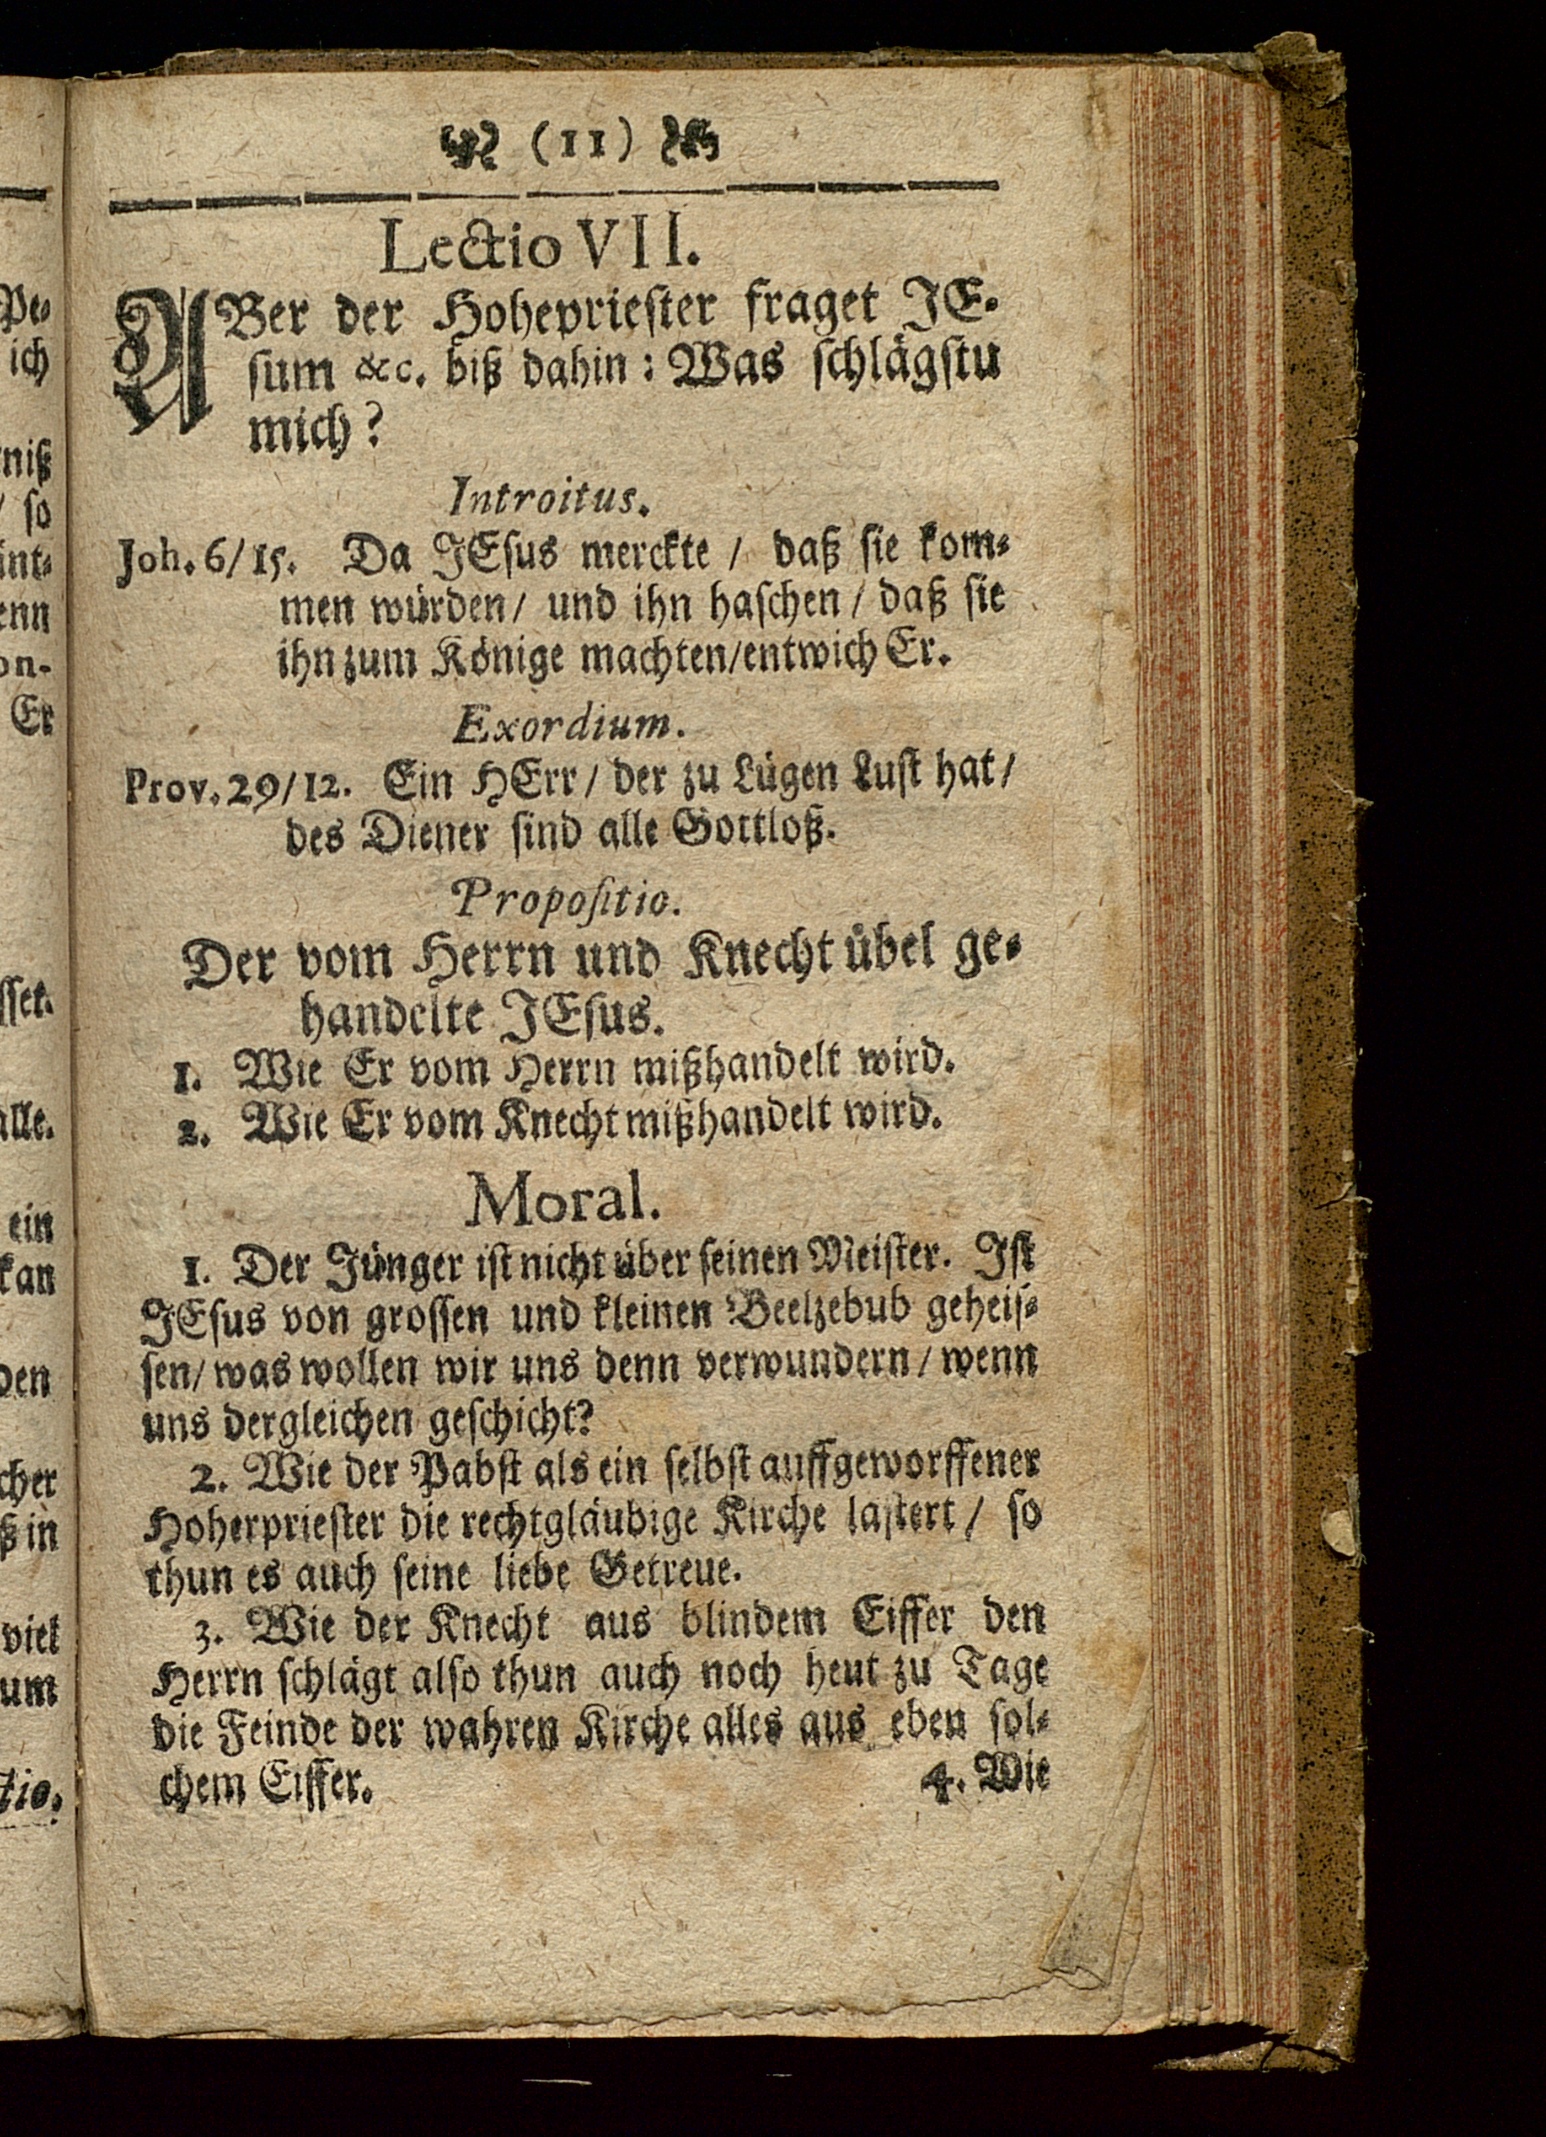 (11)
Lectio VII.
ABer der Hohepriester fraget JE-
sum &c. biß dahin: Was schlägstu
mich?
Introitus.
Joh. 6/15. Da JEsus merckte / daß sie kom-
men würden/ und ihn haschen / daß sie
ihn zum Könige machten/entwich Er.
Exordium.
Prov. 29/12. Ein HErr/ der zu Lügen Lust hat/
des Diener sind alle Gottloß.
Propositio.
Der vom Herrn und Knecht übel ge-
handelte JEsus.
1. Wie Er vom Herrn mißhandelt wird.
2. Wie Er vom Knecht mißhandelt wird.
Moral.
1. Der Jünger ist nicht über seinen Meister. Ist
JEsus von grossen und kleinen Beelzebub geheis-
sen/ was wollen wir uns denn verwundern/ wenn
uns dergleichen geschicht?
2. Wie der Pabst als ein selbst auffgeworffener
Hoherpriester die rechtgläubige Kirche lästert/ so
thun es auch seine liebe Getreue.
3. Wie der Knecht aus blindem Eiffer den
Herrn schlägt also thun auch noch heut zu Tage
die Feinde der wahren Kirche alles aus eben sol-
chem Eiffer.
4. Wie